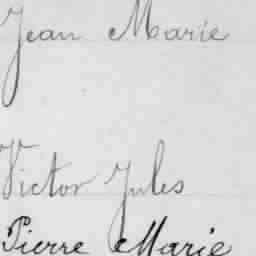 Jean Marie
Victor Jules
Pierre Marie